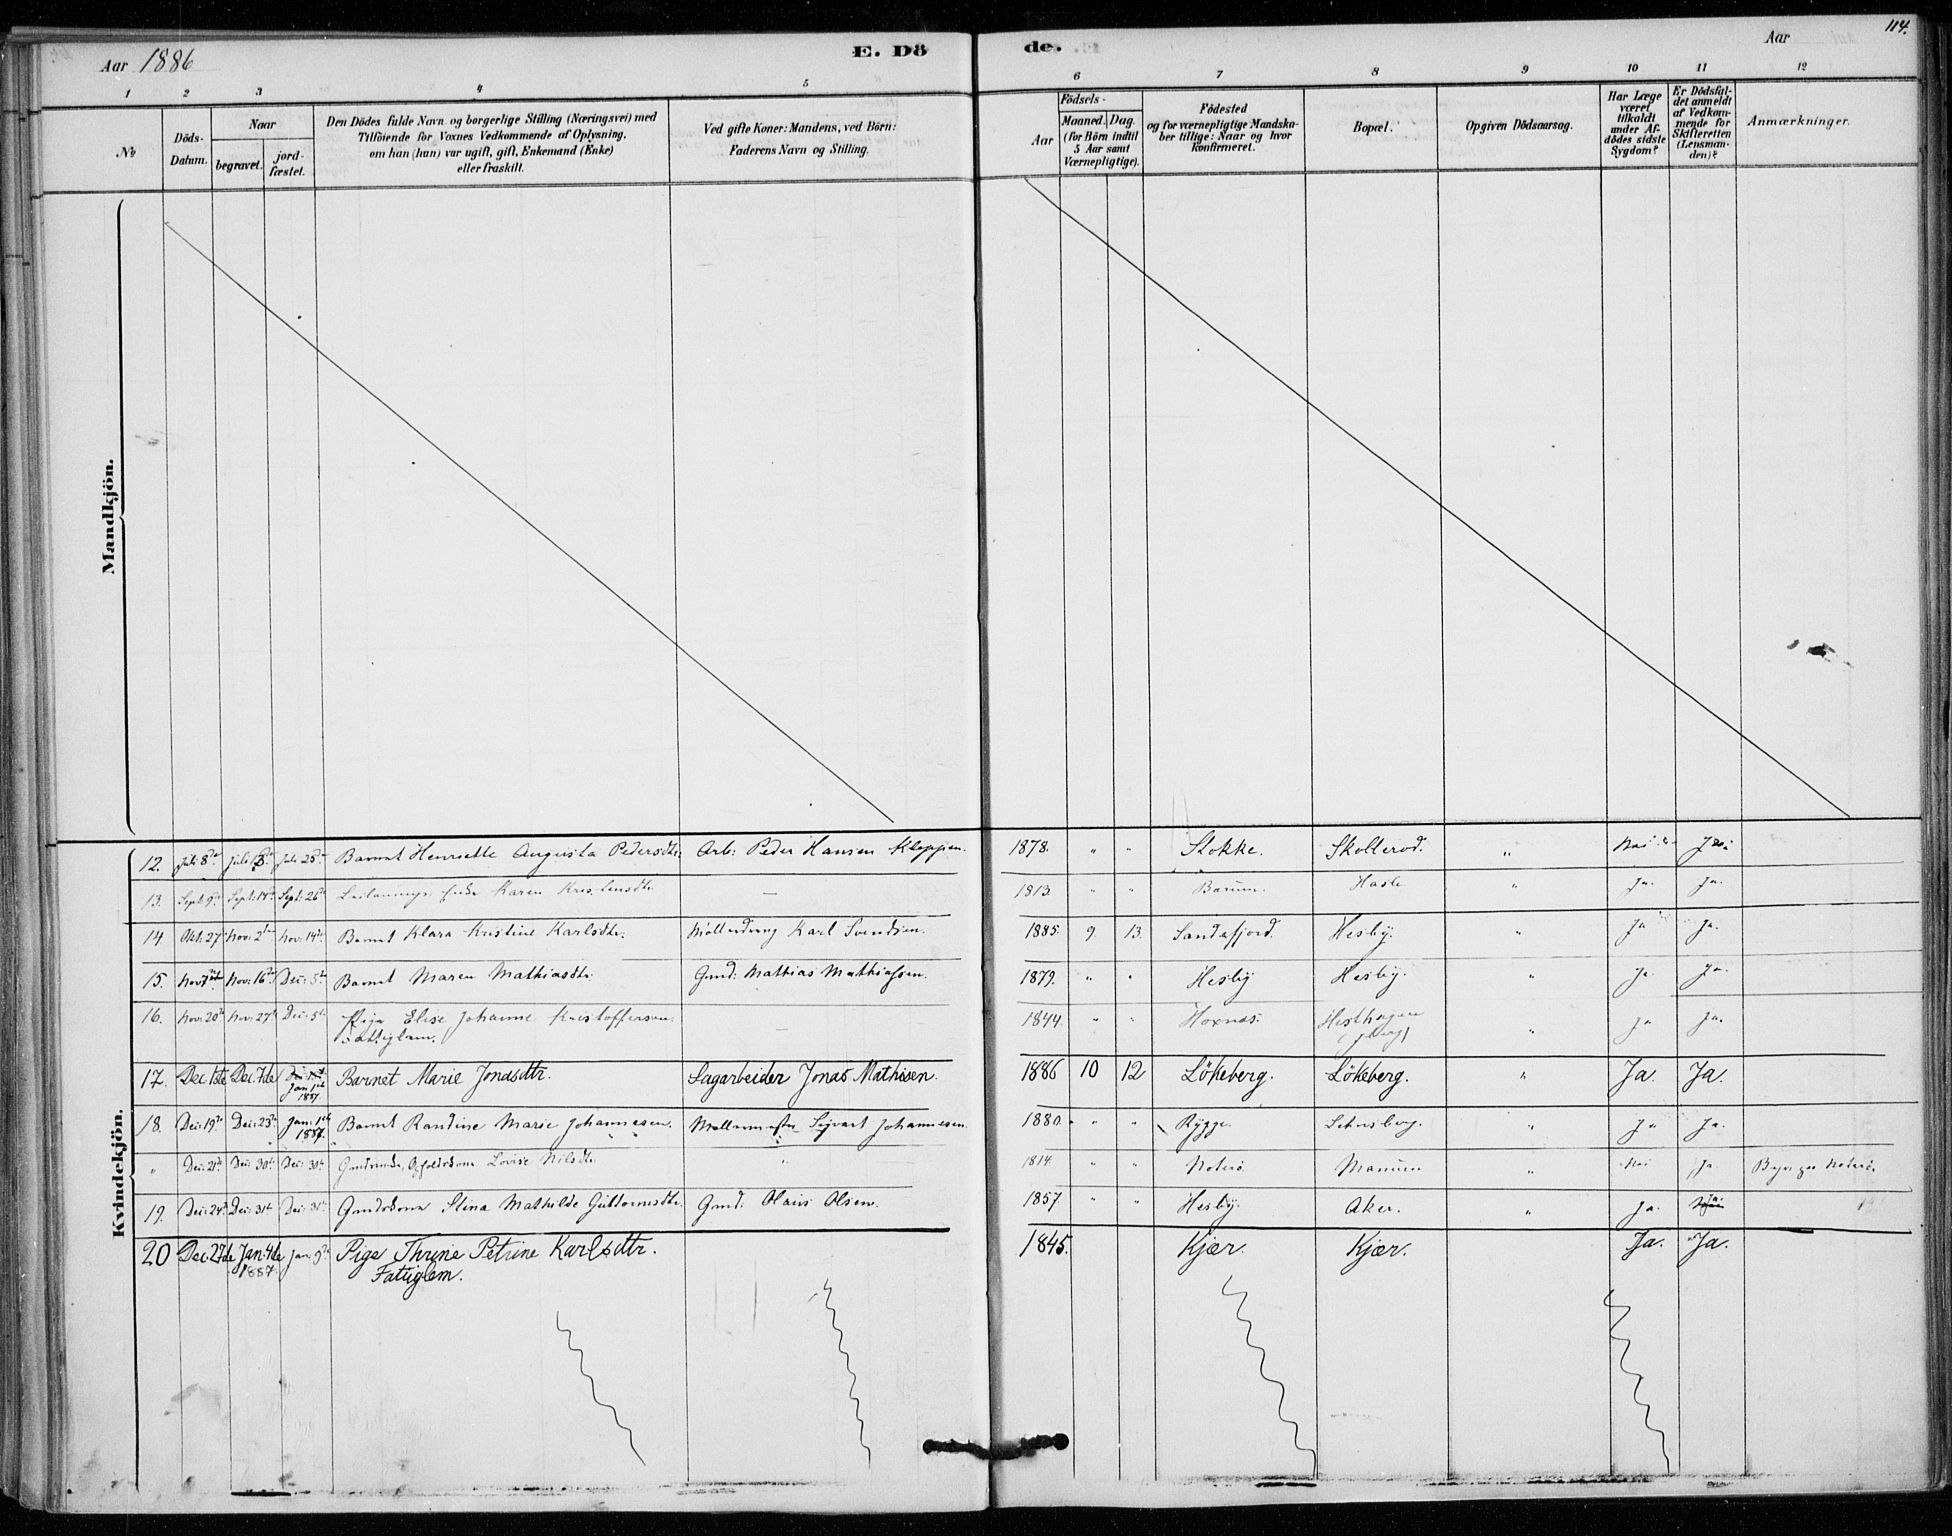 Aar 1886
E. Dö
de.
Aar
114.
1 2 3 4 5 6 7 8 9 10 11 12
No
Döds-
Datum.
Naar
begravet.
jord-
fæstet.
Den Dödes fulde Navn og borgerlige Stilling (Næringsvei) med
Tilföiende for Voxnes Vedkommende af Oplysning,
om han (hun) var ugift, gift, Enkemand (Enke)
eller fraskilt.
Ved gifte Koner: Mandens, ved Börn:
Faderens Navn og Stilling.
Födsels-
Aar
Maaned. Dag.
(for Börn indtil
5 Aar samt
Værnepligtige).
Födested
og for værnepligtige Mandska-
ber tillige: Naar og hvor
konfirmeret.
Bopæl.
Opgiven Dödsaarsag.
Har Læge
været
tilkaldt
under Af-
dödes sidste
Sygdom?
Er Dödsfal-
det anmeldt
af Vedkom-
mende for
Skifteretten
(Lensman-
den)?
Anmærkninger.
Mandkjön.
Kvindekjön.
12. Juli 8de Juli 13de Juli 25de Barnet Henriette Augusta Pedersdtr. Arb: Peder Hansen Kleppen. 1878. " " Stokke. Skollerod. " Nei
13. Sept: 9de Sept: 14de Sept: 26de Karen — 1813. " " Bærum. Hasle " Ja. Ja.
14 Okt: 27 Nov: 2den Nov: 14de Barnet Klara Kristine Karlsdtr. Karl Svendsen. 1885. 9. 13. Sandefjord. Hesby. " Ja Ja.
15. Nov 7de Nov: 16de Dec: 5te Barnet Maren Mathiasdtr. Gmd: Mathias Mathiassen. 1879. " " Hesby Hesby. " Ja Ja.
16. Nov: 20de Nov: 27de Dec: 5te Pige Elise Johanne Kristoffersen — 1844. " " Hoxnæs. Hesthagen " Ja Ja.
Fattiglem.
17. Dec 1ste Dec 7de Jan 1ste Barnet Marie Jonasdtr. Sagarbeider Jonas Mathisen. 1886 10 12 Lökeberg. Lökeberg. " Ja. Ja.
1887.
18. Dec: 19de Dec: 23de Jan: 1ste Barnet Randine Marie Johannesen. Mollermester Sigvart Johannesen. 1880. " " Rygge. " Ja Ja.
1887.
" Dec: 21de Dec: 30te Dec: 30te Lovise Nilsdtr. " 1814. " " Noterö. " Nei Ja Noterö.
19. Dec: 24de Dec: 31te Dec: 31te Gmdskone Stina Mathilde Guttormsdtr. Gmd: Olaus Olsen. 1857. " " Hesby. Aker. " Ja. Ja
20 Dec 27de Jan. 4de Jan: 9de Pige Thrine Petrine Karlsdtr. 1845. Kjær. Kjær. Ja. Ja.
1887. Fattiglem.